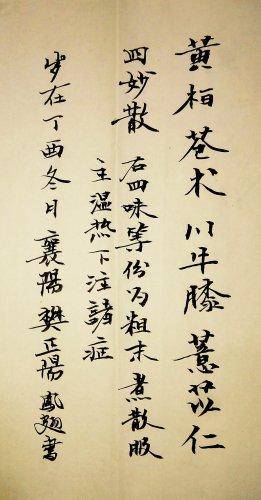 黄柏苍术川牛膝薏苡仁
四妙散 右四味等份为粗末煮散服
主湿热下注諸症
岁在丁酉冬月襄陽樊正陽
書